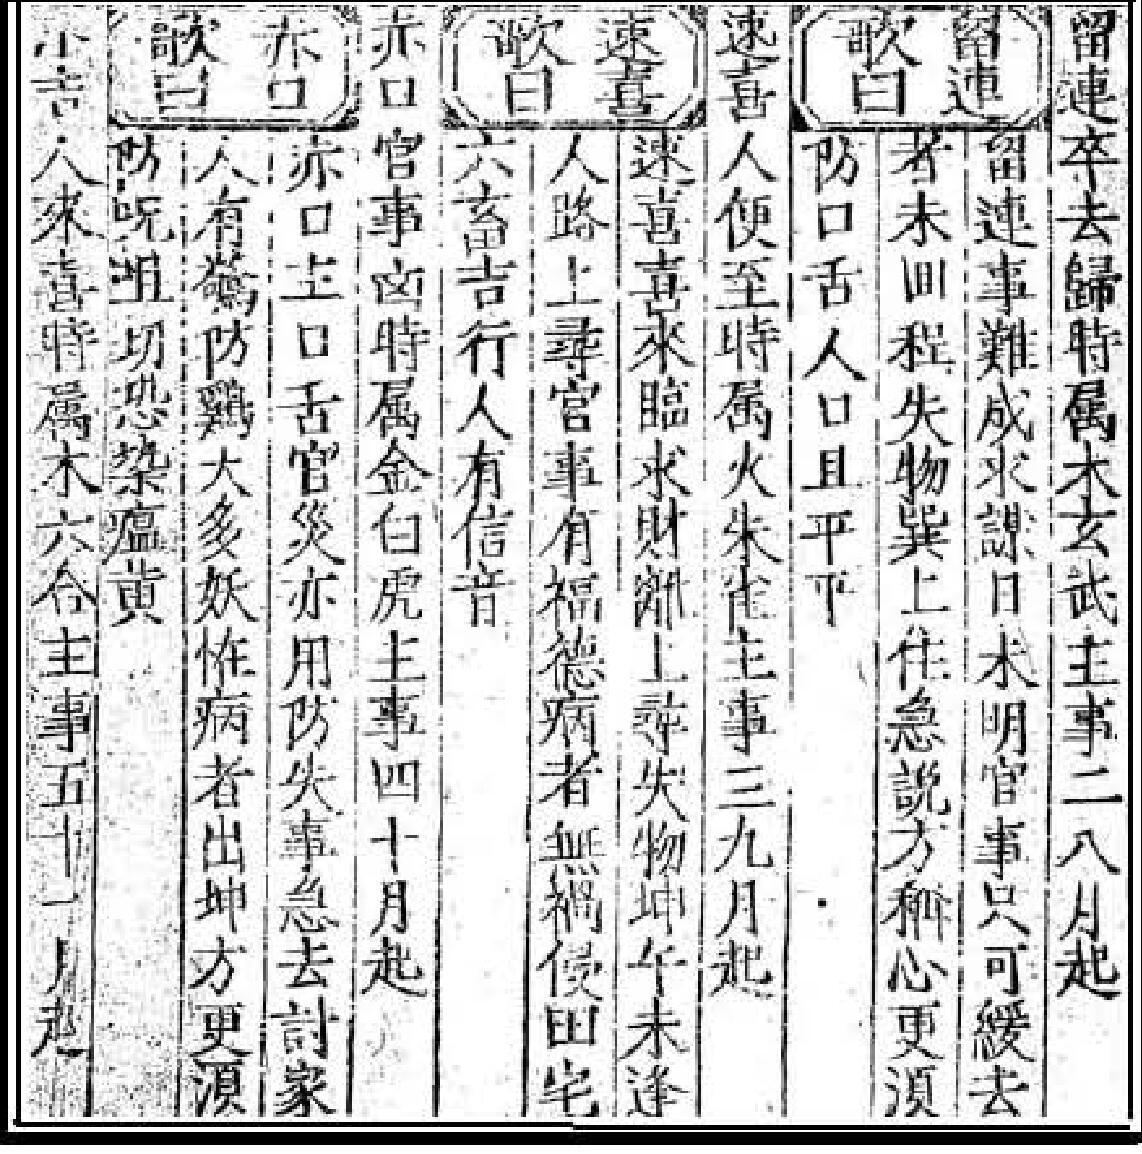 留連卒去歸時属木玄武主事二八月起
留連歌曰
留連事難成求謀日未明官事只可緩去
者未囬程失物巽上作急説方稱心更湏
防口舌人口且平平
速喜人便至時属火朱雀主事三九月起
速喜歌曰
速喜喜來臨求財離上尋失物坤午未逢
人路上尋官事有福德病者無禍侵田宅
六畜吉行人有信音
赤口官事凶時属金白虎主事四十月起
赤口歌曰
赤口主口舌官災亦用防失事急去討家
人有驚防鷄大多妖怪病者出坤方更湏
防呪詛切恐染瘟黄
小吉人來喜時属木六合主事五十一月起